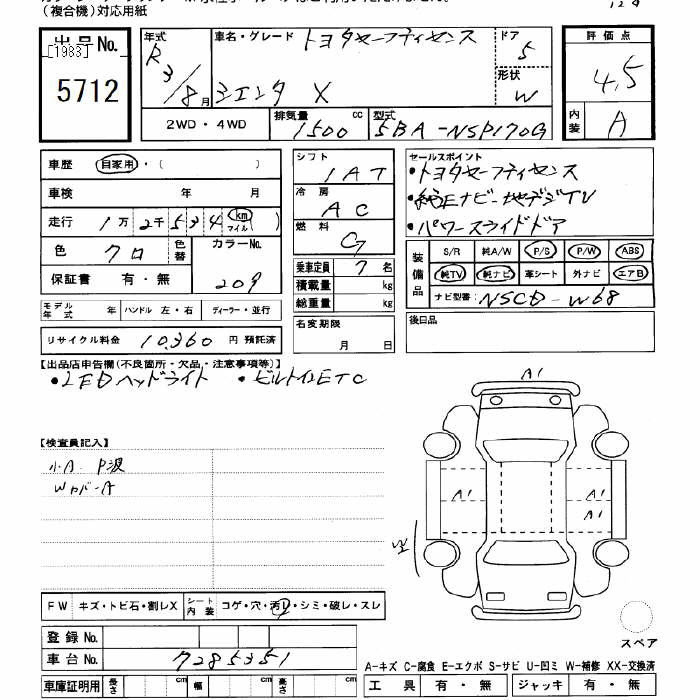 （複合機）対応用紙
出品No.
[1983]
5712
年式
R3/8月
車名・グレード
トヨタセーフティセンス
シエンタ X
ドア
5
形状
W
評価点
4,5
内装
A
2WD・4WD
排気量
1500 cc
型式
5BA-NSP170G
車歴 自家用・( )
車検 年 月
走行 1万2千534 km マイル( )
色 クロ
色替
カラーNo.
209
保証書 有・無
シフト
IAT
冷房
AC
燃料
G
乗車定員 7名
積載量 kg
総重量 kg
セールスポイント
・トヨタセーフティセンス
・純正ナビー地デジTV
・パワースライドドア
装備品
S/R 純A/W P/S P/W ABS
純TV 純ナビ 革シート 外ナビ エアB
ナビ型番 NSCD-W68
モデル年式 年 ハンドル 左・右 ディーラー・並行
リサイクル料金 10,360 円 預託済
名変期限
月 日
後日品
【出品店申告欄(不良箇所・欠品・注意事項等)】
・LEDヘッドライト ・ビルトインETC
A1
【検査員記入】
小A P波
Wカバ-A
A1
A1
A1
W
FW キズ・トビ石・割レX
シート内装 コゲ・穴・汚レ・シミ・破レ・スレ
スペア
登録No.
車台No. 7285351
A－キズ C－腐食 E－エクボ S－サビ U－凹ミ W－補修 XX－交換済
車庫証明用 長さ cm 幅 cm 高さ cm
工具 有・無 ジャッキ 有・無